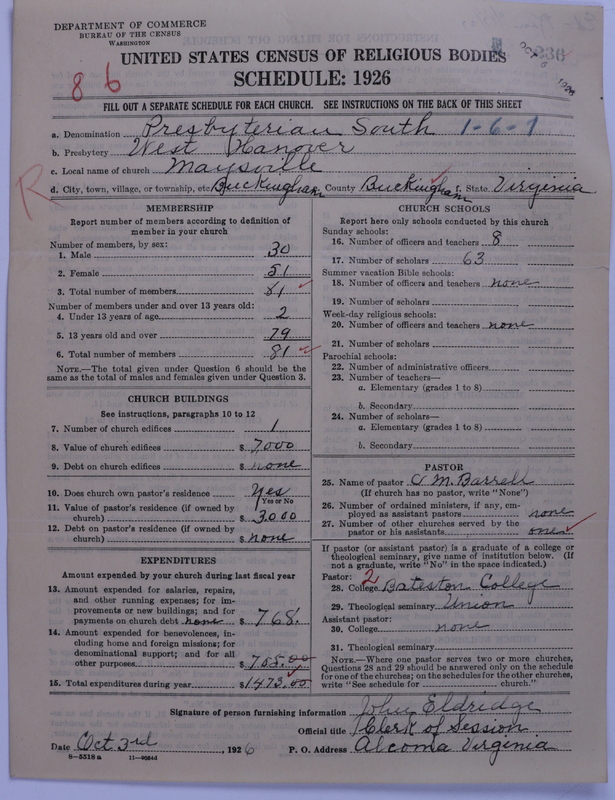 DEPARTMENT OF COMMERCE
BUREAU OF THE CENSUS
WASHINGTON
UNITED STATES CENSUS OF RELIGIOUS BODIES
SCHEDULE: 1926
86
236
OCT 6 1926
FILL OUT A SEPARATE SCHEDULE FOR EACH CHURCH. SEE INSTRUCTIONS ON THE BACK OF THIS SHEET
a. Denomination Presbyterian South 1-6-7
b. Presbytery West Hanover
c. Local name of church Maysville
d. City, town, village, or township, etc Buckingham County Buckingham f. State Virginia
R
MEMBERSHIP
Report number of members according to definition of
member in your church
Number of members, by sex:
1. Male 30
2. Female 51
3. Total number of members 81
Number of members under and over 13 years old:
4. Under 13 years of age 2
5. 13 years old and over 79
6. Total number of members 81
NOTE.—The total given under Question 6 should be
same as the total of males and females given under Question 3.
CHURCH BUILDINGS
See instructions, paragraphs 10 to 12
7. Number of church edifices 1
8. Value of church edifices $ 7,000
9. Debt on church edifices $ none
10. Does church own pastor's residence Yes
Yes or No
11. Value of pastor's residence (if owned by
church) $ 3,000
12. Debt on pastor's residence (if owned by
church) $ none
EXPENDITURES
Amount expended by your church during last fiscal year
13. Amount expended for salaries, repairs,
and other running expenses; for im-
provements or new buildings; and for
payments on church debt none $ 768.
14. Amount expended for benevolences, in-
cluding home and foreign missions; for
denominational support; and for all
other purposes $ 705.00
15. Total expenditures during year $ 1473.00
CHURCH SCHOOLS
Report here only schools conducted by this church
Sunday schools:
16. Number of officers and teachers 8
17. Number of scholars 63
Summer vacation Bible schools:
18. Number of officers and teachers none
19. Number of scholars
Week-day religious schools:
20. Number of officers and teachers none
21. Number of scholars
Parochial schools:
22. Number of administrative officers
23. Number of teachers—
a. Elementary (grades 1 to 8)
b. Secondary
24. Number of scholars—
a. Elementary (grades 1 to 8)
b. Secondary
PASTOR
25. Name of pastor C M. Barrell
(If church has no pastor, write "None")
26. Number of ordained ministers, if any, em-
ployed as assistant pastors none
27. Number of other churches served by the
pastor or his assistants one
If pastor (or assistant pastor) is a graduate of a college or
theological seminary, give name of institution below. (If
not a graduate, write "No" in the space indicated.)
Pastor: 2
28. College Bateston College
29. Theological seminary Union
Assistant pastor:
30. College none
31. Theological seminary
NOTE.—Where one pastor serves two or more churches,
Questions 28 and 29 should be answered only on the schedule
for one of the churches; on the schedules for the other churches,
write "See schedule for church."
Signature of person furnishing information John Eldridge
Official title Clerk of Session
Date Oct. 3rd, 1926 P. O. Address Alcoma Virginia
8-5518 a